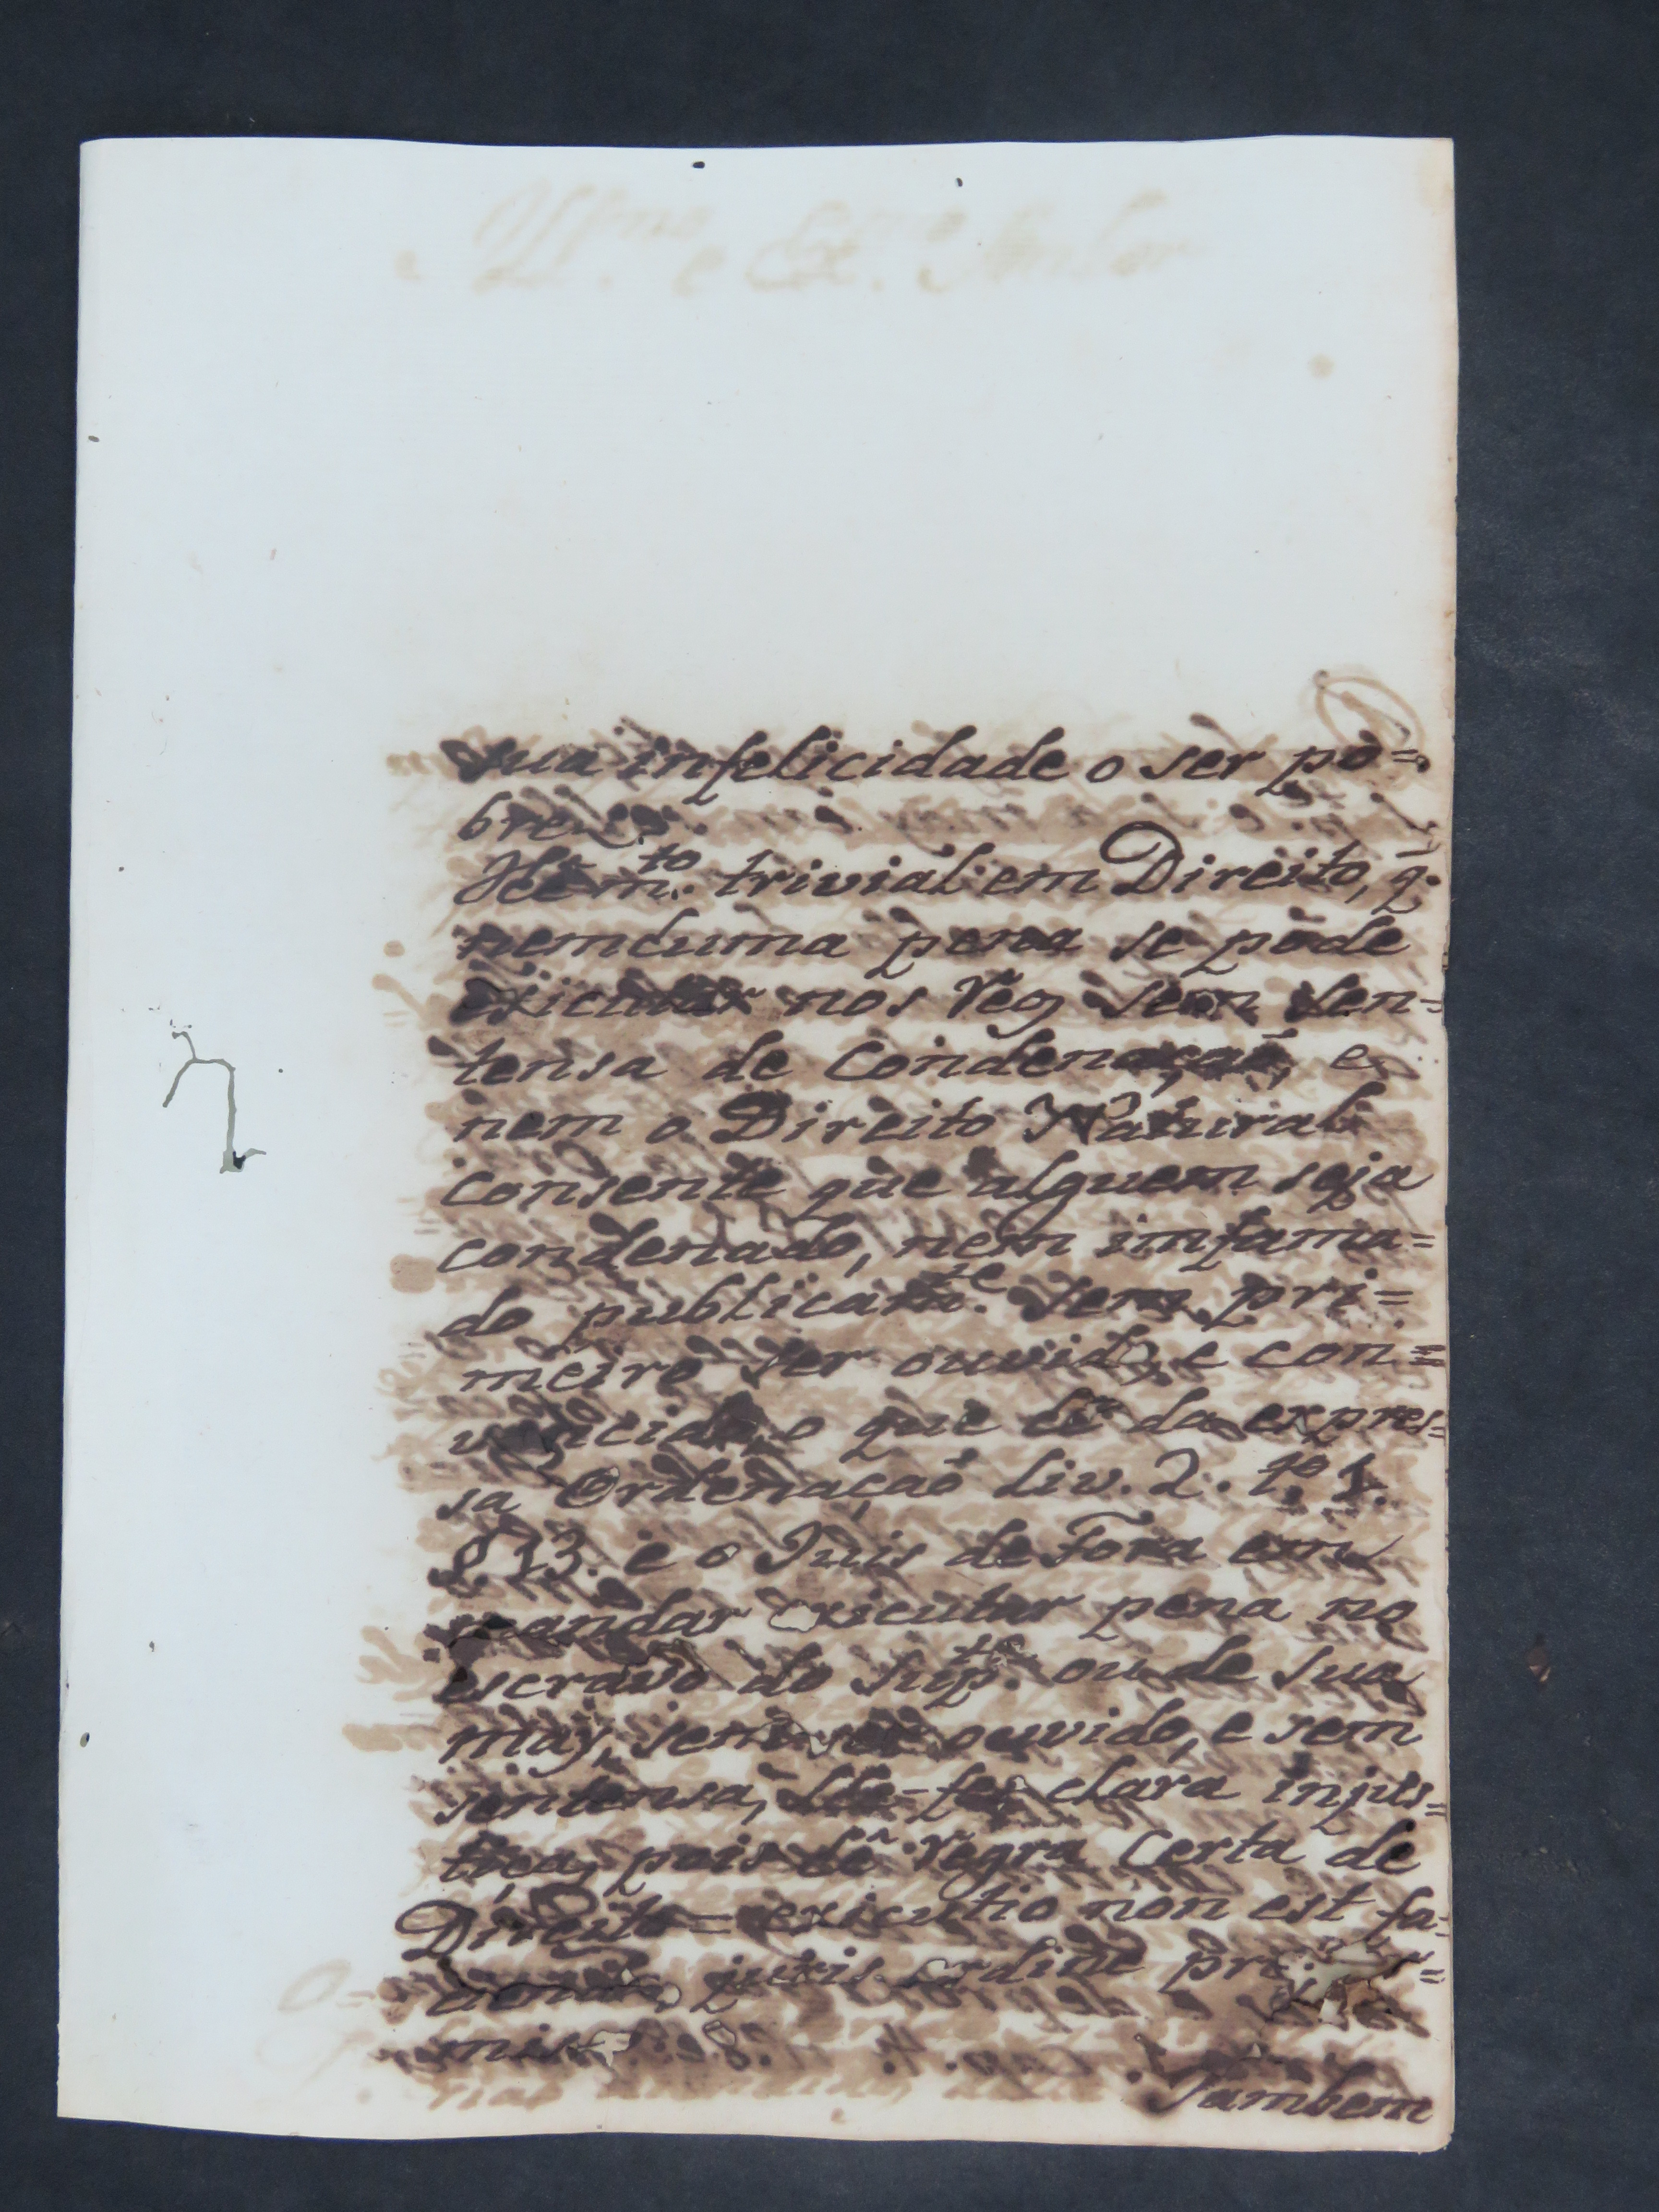 sua infelicidade o ser po=
bre
He m.to trivial em Direito, q.
nemhuma pena se pode
exicutar nos Reos sem sen=
tensa de Condenação, e
nem o Direito Natural
consente que alguem seja
condenado, nem imfama=
do publicam.te sem pri=
meiro ser ouvido, e con=
vencido, o que hé da expres=
sa Ordenação Liv. 2. t.o 1.
§. 13. e o Juis de Fora em
mandar exicutar pena no
escravo do Sup.te ou de sua
may, sem ser ouvido, e sem
sentensa, lhe fes clara injus=
tiça, pois hé regra Certa de
Direito = exicutio non est fa=
juris ordine
Tambem